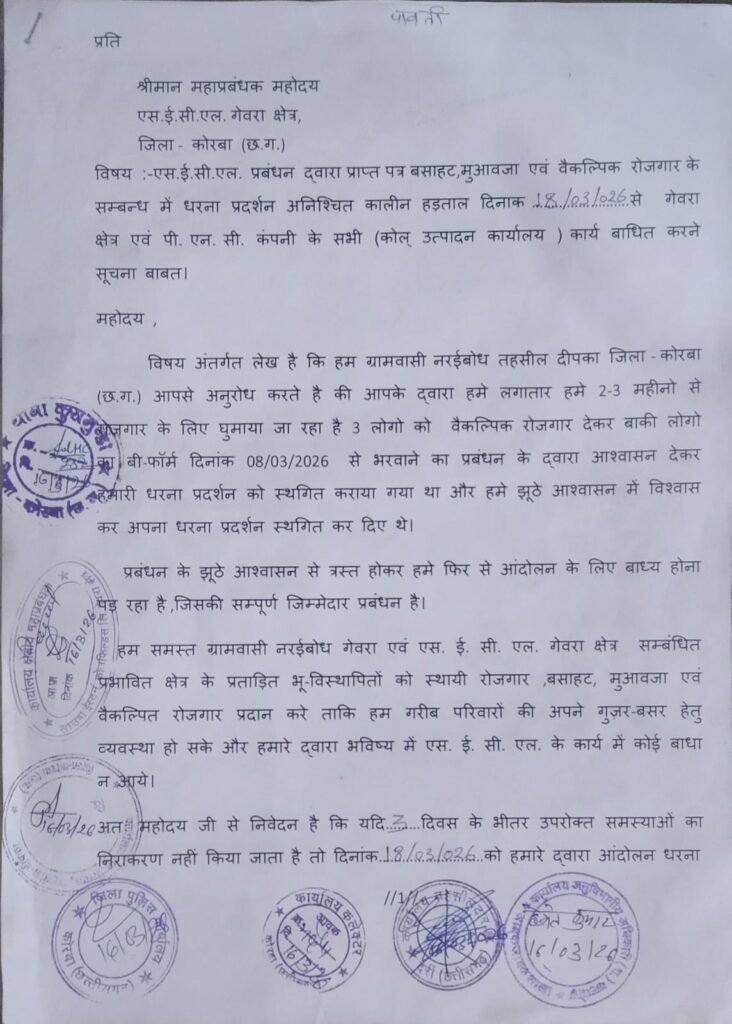 पावती
प्रति
श्रीमान महाप्रबंधक महोदय
एस.ई.सी.एल. गेवरा क्षेत्र,
जिला - कोरबा (छ.ग.)
विषय :-एस.ई.सी.एल. प्रबंधन द्वारा प्राप्त पत्र बसाहट,मुआवजा एवं वैकल्पिक रोजगार के
सम्बन्ध में धरना प्रदर्शन अनिश्चित कालीन हड़ताल दिनाक 18/03/026 से गेवरा
क्षेत्र एवं पी. एन. सी. कंपनी के सभी (कोल् उत्पादन कार्यालय ) कार्य बाधित करने
सूचना बाबत।
महोदय ,
विषय अंतर्गत लेख है कि हम ग्रामवासी नरईबोध तहसील दीपका जिला - कोरबा
(छ.ग.) आपसे अनुरोध करते है की आपके द्वारा हमे लगातार हमे 2-3 महीनो से
रोजगार के लिए घुमाया जा रहा है 3 लोगो को वैकल्पिक रोजगार देकर बाकी लोगो
का बी-फॉर्म दिनांक 08/03/2026 से भरवाने का प्रबंधन के द्वारा आश्वासन देकर
हमारी धरना प्रदर्शन को स्थगित कराया गया था और हमे झूठे आश्वासन में विश्वास
कर अपना धरना प्रदर्शन स्थगित कर दिए थे।
प्रबंधन के झूठे आश्वासन से त्रस्त होकर हमे फिर से आंदोलन के लिए बाध्य होना
पड़ रहा है ,जिसकी सम्पूर्ण जिम्मेदार प्रबंधन है।
हम समस्त ग्रामवासी नरईबोध गेवरा एवं एस. ई. सी. एल. गेवरा क्षेत्र सम्बंधित
प्रभावित क्षेत्र के प्रताड़ित भू-विस्थापितों को स्थायी रोजगार ,बसाहट, मुआवजा एवं
वैकल्पित रोजगार प्रदान करे ताकि हम गरीब परिवारों की अपने गुज़र-बसर हेतु
व्यवस्था हो सके और हमारे द्वारा भविष्य में एस. ई. सी. एल. के कार्य में कोई बाधा
न आये।
अतः महोदय जी से निवेदन है कि यदि 3 दिवस के भीतर उपरोक्त समस्याओं का
निराकरण नहीं किया जाता है तो दिनांक 18/03/026 को हमारे द्वारा आंदोलन धरना
//1//
थाना कुसमुण्डा
16/3/26
कार्यालय क्षेत्रीय महाप्रबंधक
दिनांक 16/3/26
16/03/26
जिला पुलिस कार्यालय
कोरबा (छत्तीसगढ़)
कार्यालय कलेक्टर
आवक
कोरबा (छत्तीसगढ़)
(छत्तीसगढ़)
कार्यालय अनुविभागीय अधिकारी (रा.)
16/03/26